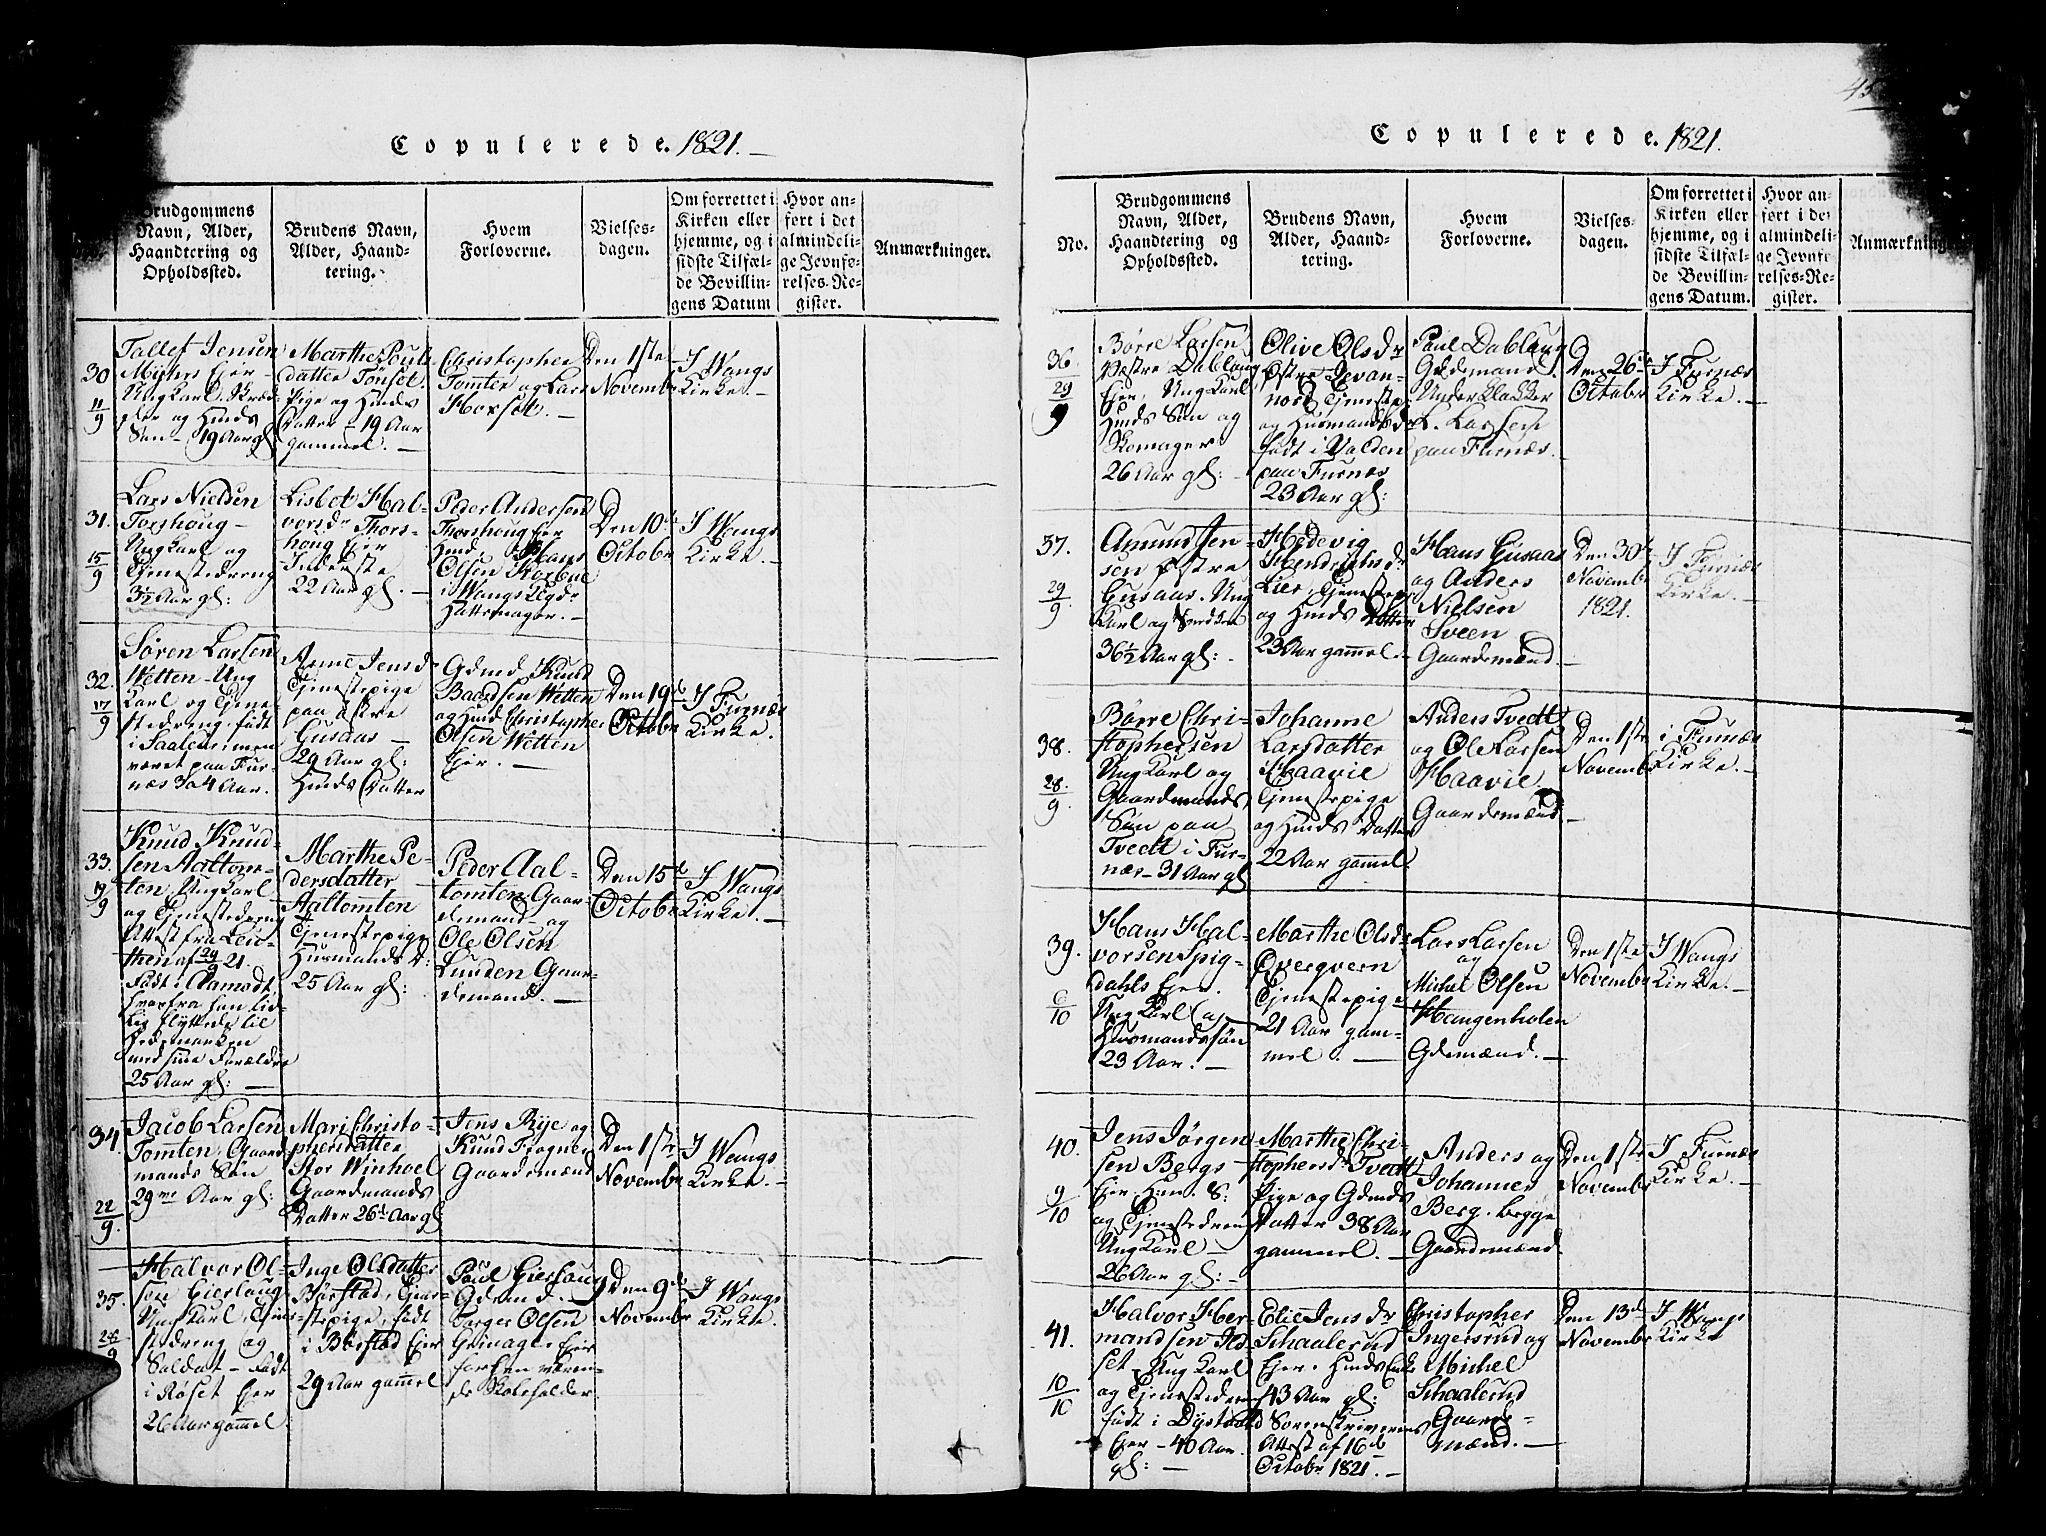 Copulerede. 1821.
Brudgommens
Navn, Alder,
Haandtering og
Opholdssted.
Brudens Navn,
Alder, Haand-
tering.
Hvem
Forloverne.
Vielses-
dagen.
Om forrettet i
Kirken eller
hjemme, og i
sidste Tilfæl-
de Bevillin-
gens Datum
Hvor an-
ført i det
almindeli-
ge Jevnfø-
relses-Re-
gister.
Anmærkninger.
30
11/9
Tallef Jensen
Ejer
Ung Karl
og Hmds
Søn - 19 Aar gl.
Marthe Pouls
datter Tönset.
Pige og Hmds
Datter - 19 Aar
gammel.
Christopher
Tomter og Lars
Horset.
Den 1ste
Novembr
I Wangs
Kirke.
31.
15/9
Lars Nielsen
Torshoug
Ung Karl og
Tjenestedreng
31½ Aar gl:
Lisbet Hal-
vorsdr Thors-
houg Ejer
Inderste
22 Aar gl.
Peder Andersen
Thorshoug Ejer
Hmd, Hans
Olsen Korbøe
i Wangs
Hattemager.
Den 10de
Octobr
I Wangs
Kirke.
32.
17/9
Søren Larsen
Wetten - Ung
Karl og Tjene-
stedreng, født
i men
været paa Fur-
næs 3 a 4 Aar.
Anne Jensdr
Tjenestepige
paa østre
Gusaas
29 Aar gl:
Hmds Datter
Gdmd Knud
Baardsen Wetten
og Hmd Christopher
Olsen Wetten
Ejer.
Den 19de
Octobr
I Furnæs
Kirke.
33.
19/9
Knud Knud-
sen Aaltom-
ten, Ung Karl
og Tjenestedreng
Attest fra Leu-
then af 29/9 21.
Født i Aamodt
hvorfra han
flyttede til
Hedemarken
med sine Forældre
25 Aar gl:
Marthe Pe-
dersdatter
Aaltomten
Tjenestepige
Husmands D:
25 Aar gl:
Peder Aal-
tomten Gaar-
demand og
Ole Olsen
Lunden Gaar-
demand.
Den 15de
Octobr
I Wangs
Kirke.
34.
22/9.
Jacob Larsen
Tomten, Gaard-
mands Søn
29 Aar gl:
Mari Christo-
phersdatter
Stor Winhoel
Gaardmands
Datter 26 Aar gl
Jens Rye og
Knud Frogner
Gaardemænd
Den 1ste
Novembr
I Wangs
Kirke.
35.
Halvor Ol-
sen Gierlaug
Ung Karl, Tjene-
stedreng og
Soldat - Født
i Røset Ejer
26 Aar gammel
Inge Olsdatter
Børstad, Tjene-
stepige, født
i Børstad Ejer
29 Aar gammel
Paul Gierlaug
Gdemd.
Olsen
Ejer
forhen væren-
de Skoleholder
Den 9de
Novembr
I Wangs
Kirke.
45
Copulerede. 1821.
No.
Brudgommens
Navn, Alder,
Haandtering og
Opholdssted.
Brudens Navn,
Alder, Haand-
tering.
Hvem
Forloverne.
Vielses-
dagen.
Om forrettet i
Kirken eller
hjemme, og i
sidste Tilfæl-
de Bevillin-
gens Datum.
Hvor an-
ført i det
almindeli-
ge Jevnfø-
relses-Re-
gister.
Anmærkninger
36
29/9
Børre Larsen
Vestre Dablaug
Ejer, Ung Karl
Hmds Søn og
Skomager
26 Aar gl:
Olive Olsdr
Østre Jevan-
nord Tjenestep:
og Husmandsdr
født i Valden
paa Furnæs
23 Aar gl:
Paul Dablaug
Gdemand.
Under Klokker
L. Larsen
paa Furnæs.
Den 26de
Octobr
I Furnæs
Kirke.
37.
29/9.
Amund Jen-
sen Østre
Gusaas. Ung
Karl og
36½ Aar gl:
Hedevig
Hendrichsdr
Lier, Tjenestepige
og Hmds Datter
23 Aar gammel.
Hans Gusaas
og Anders
Nielsen
Sveen
Gaardemænd.
Den 30te
Novembr
1821.
I Furnæs
Kirke.
38.
28./9.
Børre Chri-
stophersen
Ung Karl og
Gaardmands
Søn paa
Tvedt i Fur-
næs - 31 Aar gl
Johanne
Larsdatter
Haavie
Tjenestepige
og Hmds Datter
22 Aar gammel.
Anders Tvedt
og Ole Larsen
Haavie.
Gaardemænd.
Den 1ste
Novembr
i Furnæs
Kirke.
39.
6/10
Hans Hal-
vorsen Spig-
dahls Ejer.
Ung Karl og
Husmandssøn
23 Aar.
Marthe Olsdr
Overqvern
Tjenestepige
21 Aar gam-
mel.
Lars Larsen
og
Michel Olsen
Haugenholen
Gdemænd.
Den 1ste
Novembr
I Wangs
Kirke.
40.
9/10
Jens Jørgen-
sen Bergs
Ejer, Hm. S:
og Tjenestedreng
Ung Karl
26 Aar gl:
Marthe Chri-
stophersdr Tvedt
Pige og Gdmds
Datter 38 Aar
gammel.
Anders og
Johannes
Berg. begge
Gaardemænd.
Den 1ste
Novembr
I Furnæs
Kirke.
41.
10/10
Halvor Her-
mandsen Ild-
set - Ung Karl
og Tjenestedreng
født i Dystvold
Ejer - 40 Aar
gl:
Elie Jensdr
Schaalerud
Ejer. Hmds Enke
43 Aar gl:
Sorenskriverens
Attest af 16de
Octobr 1821.
Christopher
Ingersrud og
Michel
Schaalerud
Gaarde-
mænd.
Den 13de
Novembr
I Wangs
Kirke